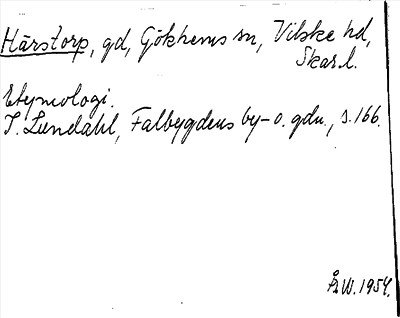 Härstorp, gd, Gökhems sn, Vilske hd,
Skar.l.
Etymologi.
I. Lundahl, Falbygdens by- o. gdn., s. 166.
År W. 1954.